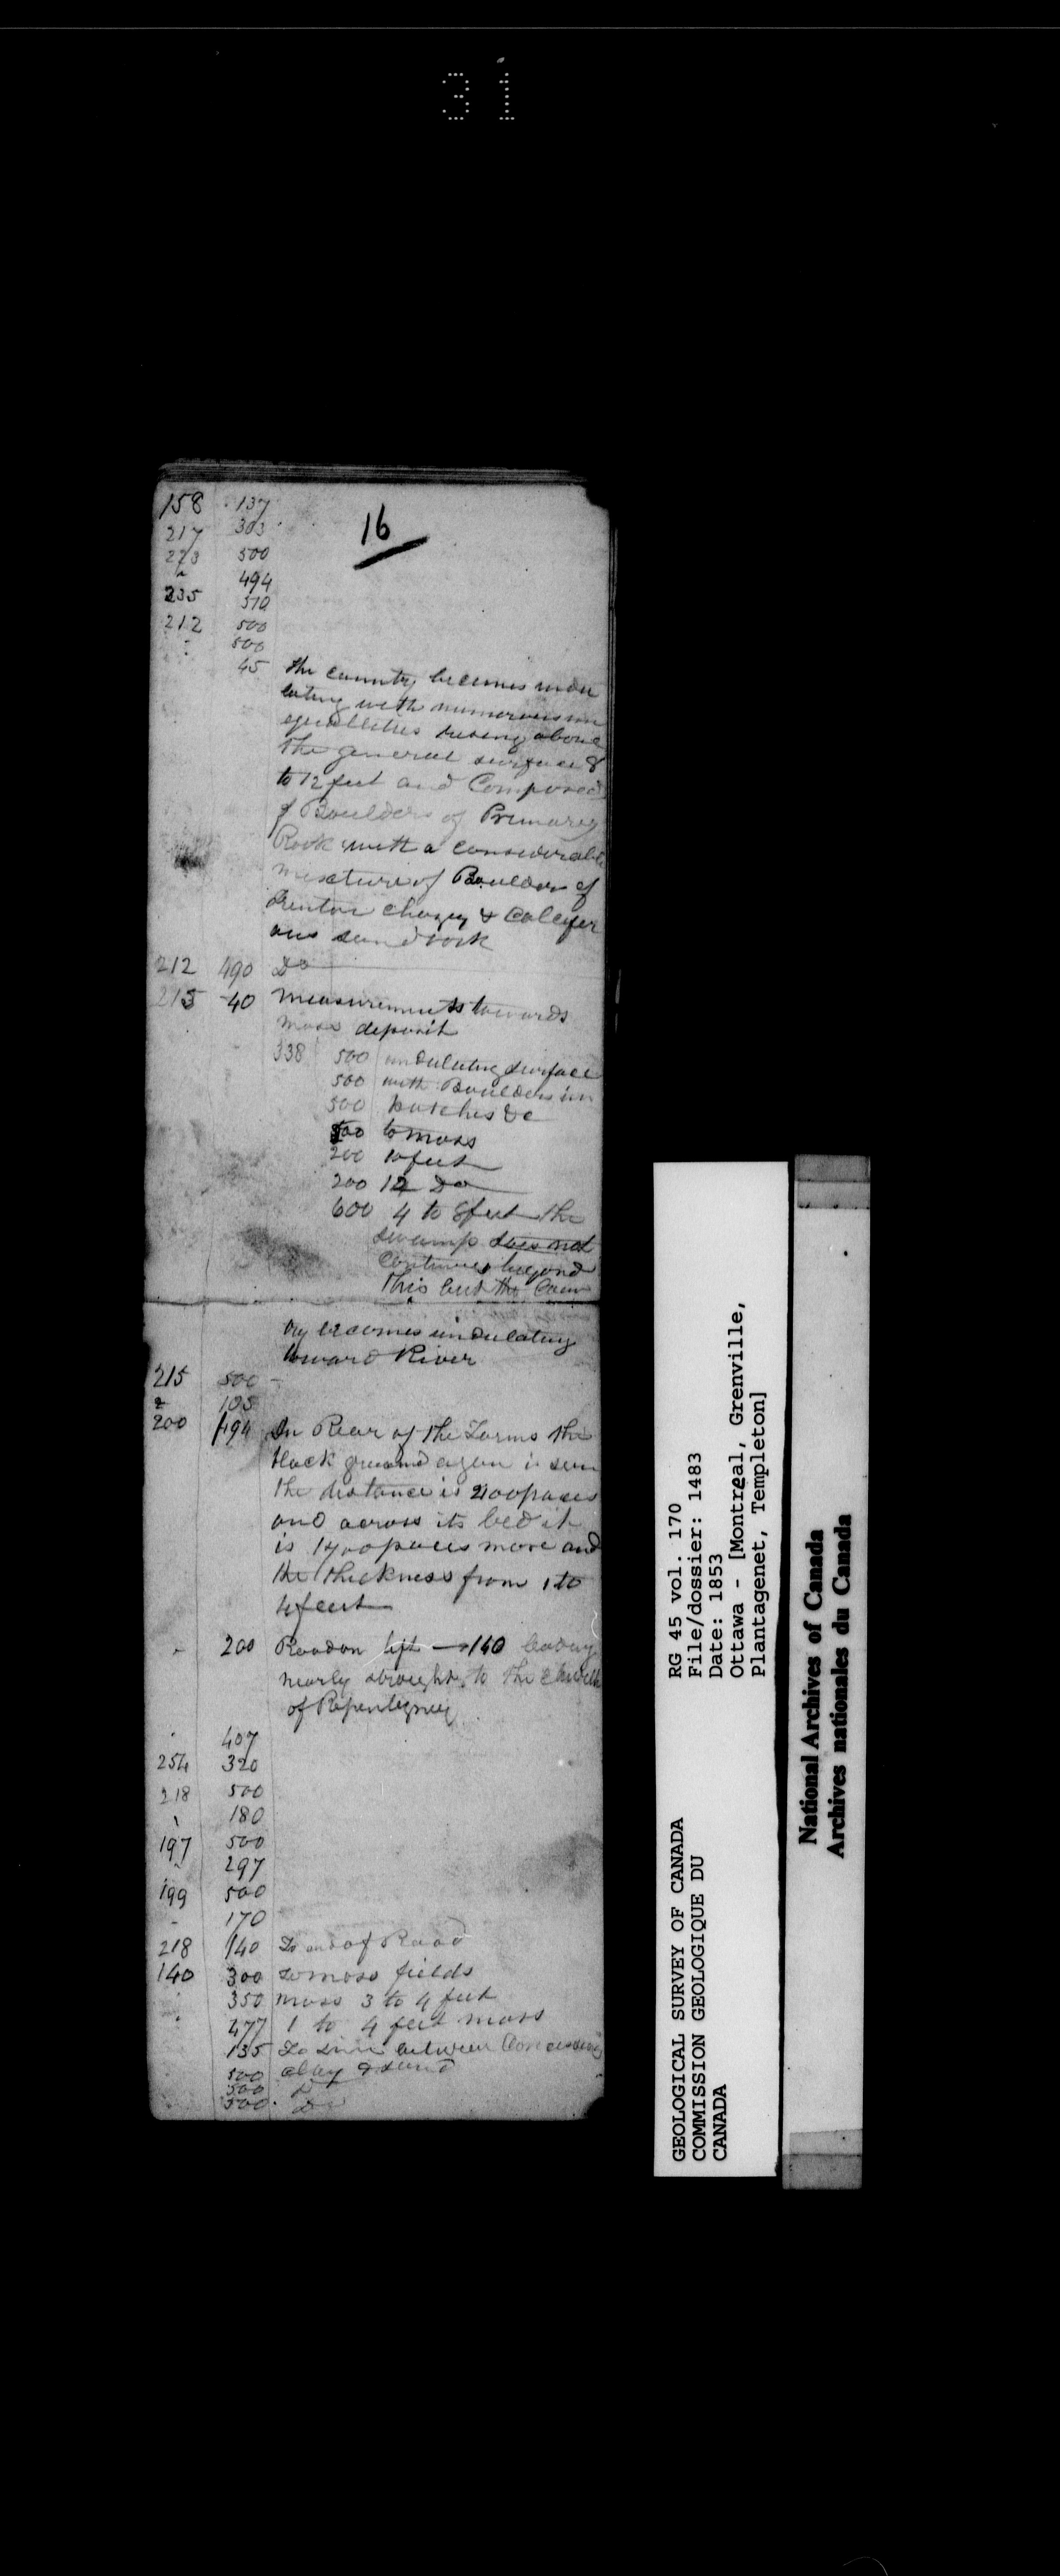 31
16
158 137
217 303
223 500
" 494
235 510
212 500
500
45 the country becomes undu
lating with numerous une
qualities rising above
the general surface 8
to 12 feet and Composed
of Boulders of Primary
Rock with a considerable
mixture of Boulders of
Trenton Chazy & Calcifer
ous sandrock
212 490 Do
215 40 Measurements towards
moss deposit
338 500 undulating surface
500 with Boulders in
500 patches &c
500 to moss
200 10 feet
200 12 Do
600 4 to 8 feet the
swamp does not
continues beyond
this but the Coun
try becomes undulating
toward River
215 500
" 105
200 494 In Rear of the Farms the
black ground again is seen
the distance is 2100 paces
and across its bed it
is 1400 paces more and
the thickness from 1 to
4 feet
200 Road on left → 140 leading
nearly straight to the church
of Repentigny
407
254 320
218 500
180
197 500
297
199 500
170
218 140 To end of Road
140 300 To moss fields
350 moss 3 to 4 feet
477 1 to 4 feet moss
135 To Line between Concessions
500 clay & sand
500 Do
500 Do
GEOLOGICAL SURVEY OF CANADA
COMMISSION GEOLOGIQUE DU
CANADA
RG 45 vol. 170
File/dossier: 1483
Date: 1853
Ottawa - [Montreal, Grenville,
Plantagenet, Templeton]
National Archives of Canada
Archives nationales du Canada